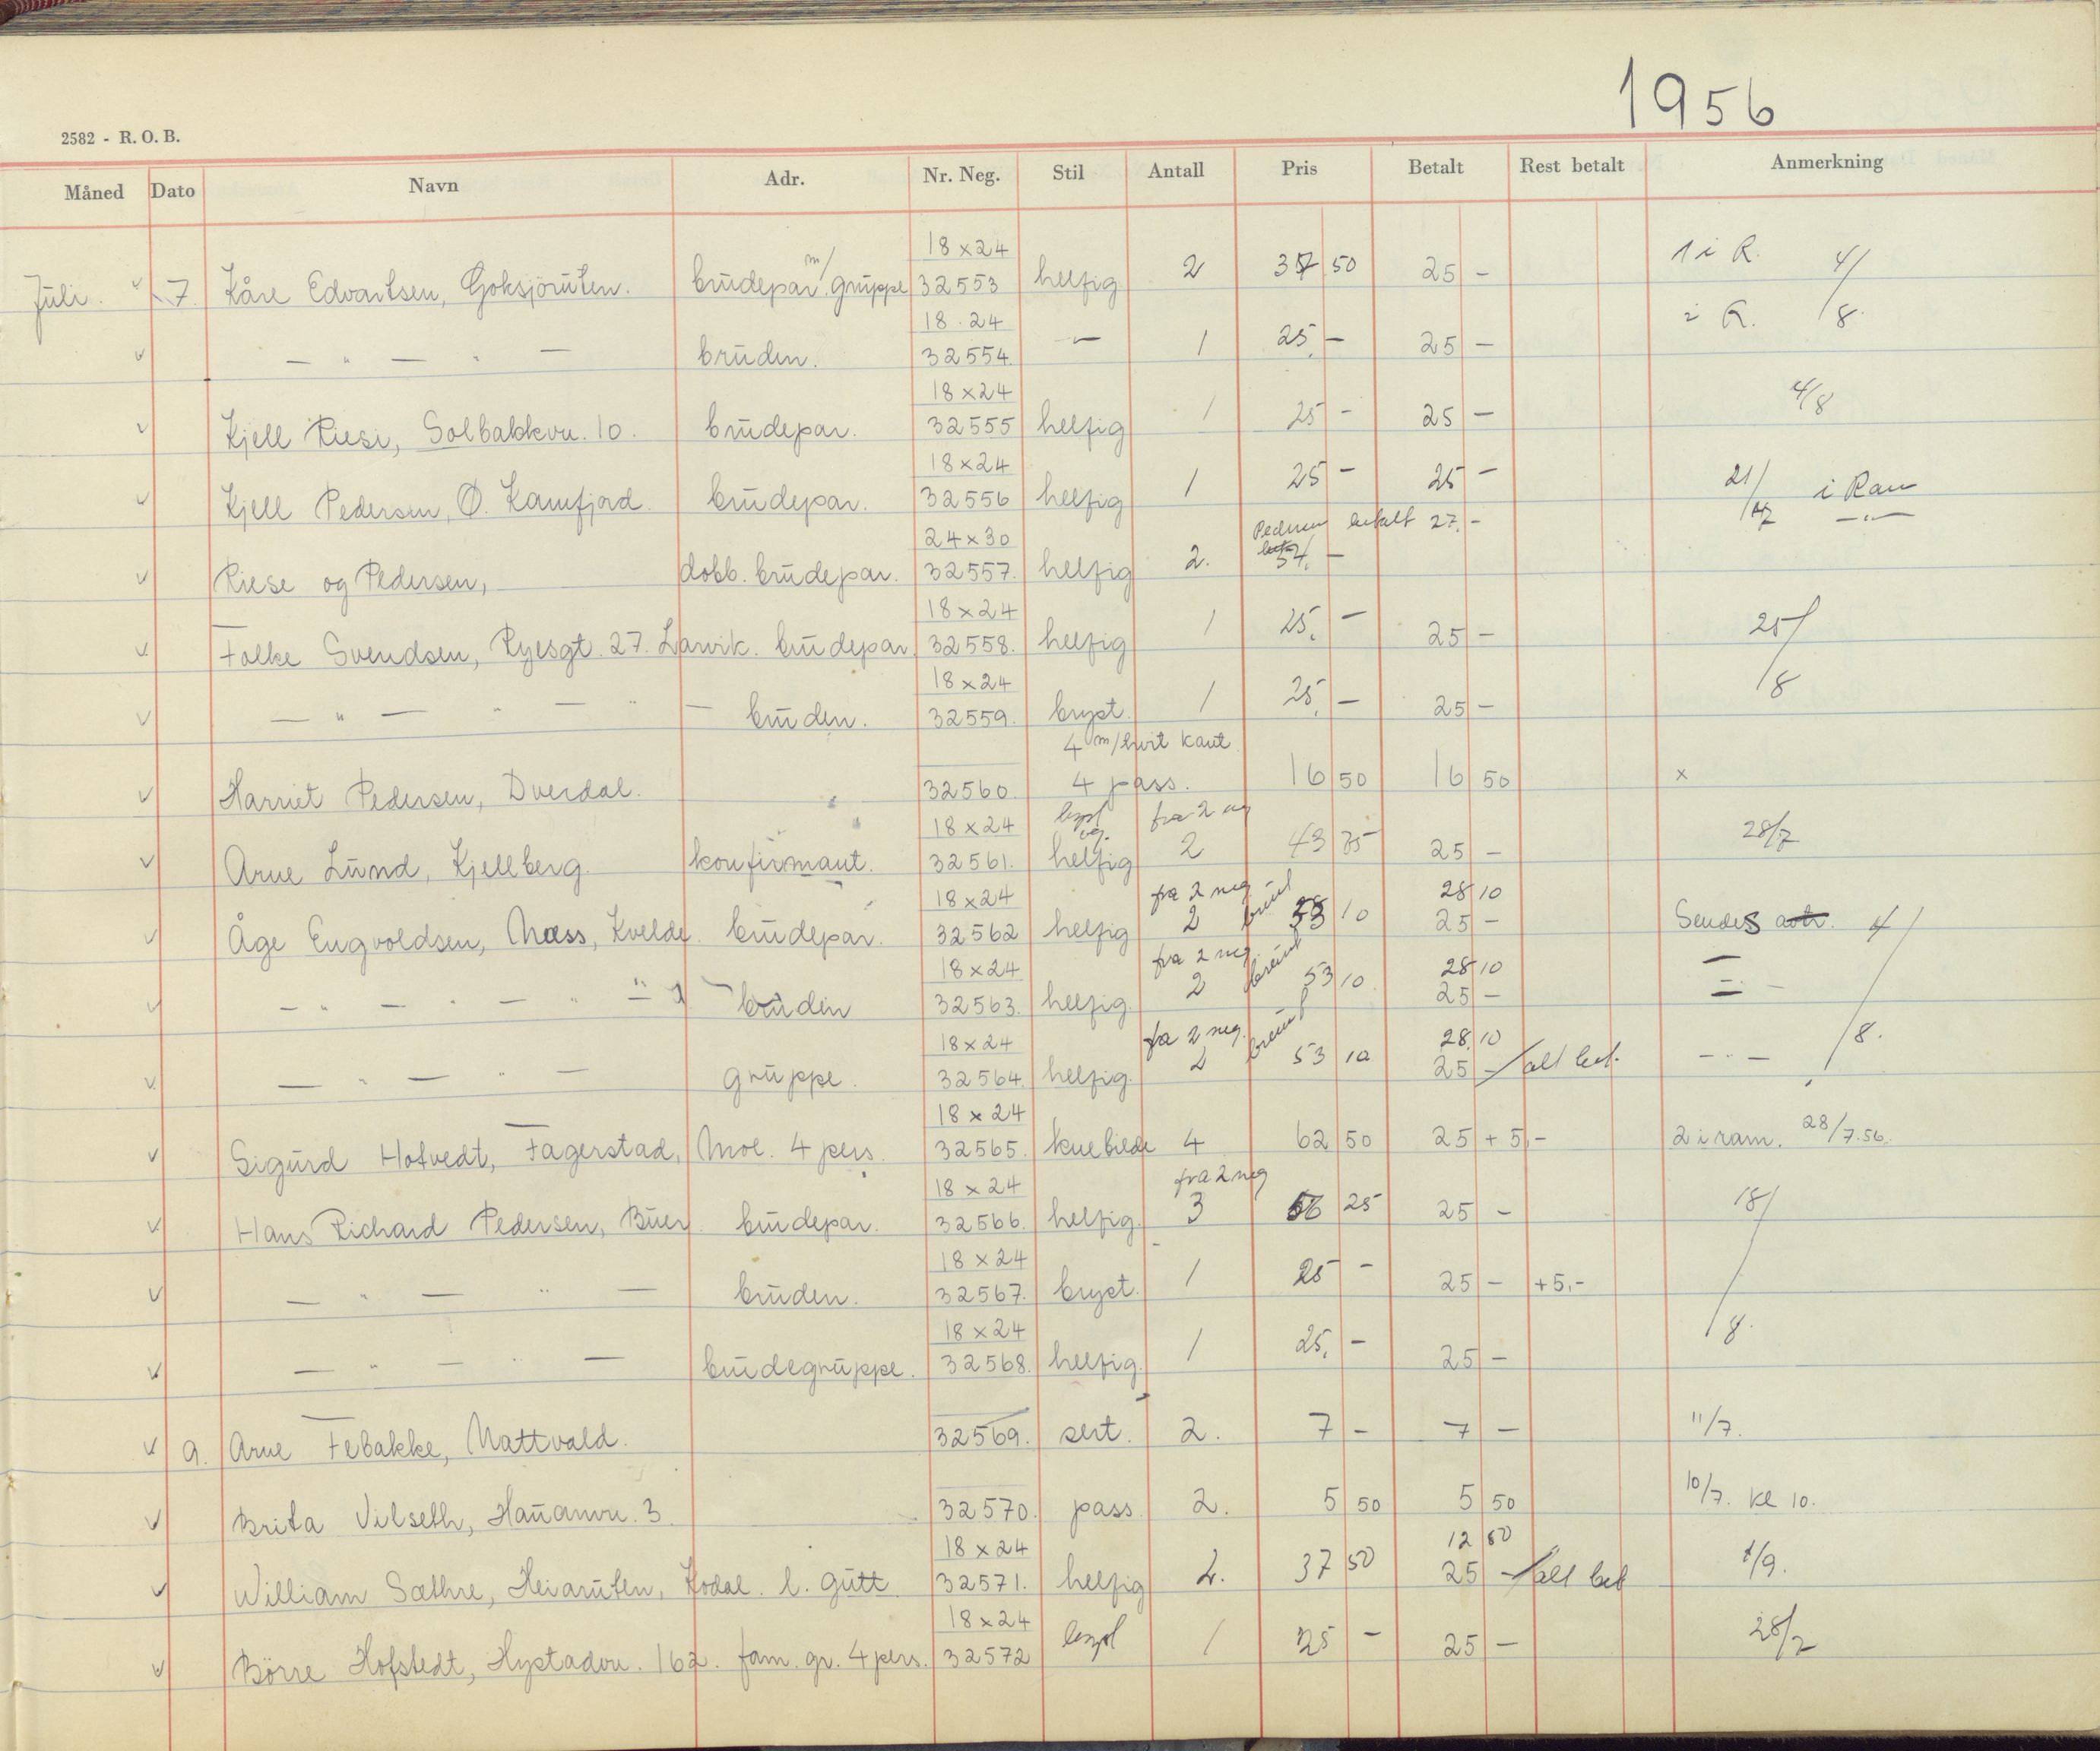 1956
2582 - R. O. B.
Måned Dato Navn Adr. Nr. Neg. Stil Antall Pris Betalt Rest betalt Anmerkning
18 x 24
Juli. 7. Kåre Edvartsen, Goksjöruten. brudepar m/ gruppe 32553 helfig 2 37 50 25 - 1 i R. 4/8.
18 . 24
— " — " — bruden. 32554. — 1 25,- 25 - i R.
18 x 24
Kjell Riesi, Solbakkvn. 10. brudepar. 32555 helfig 1 25 - 25 - 4/8
18 x 24
Kjell Pedersen, Ø. Kamfjord. brudepar. 32556 helfig 1 25 - 25 - 21/7 i Ram
24 x 30 Pedersen betalt 27,-
Riese og Pedersen, dobb. brudepar. 32557. helfig 2. 54,- — " —
18 x 24
Folke Svendsen, Ryesgt. 27. Larvik. brudepar 32558. helfig 1 25,- 25 - 25/8
18 x 24
— " — " — " — bruden. 32559. bryst. 1 25,- 25 -
4 m/hvit kant
Harriet Pedersen, Dverdal. 32560. 4 pass. 16 50 16 50 x
18 x 24 fra 2 neg
Arne Lund, Kjellberg. konfirmant. 32561. helfig 2 43 75 25 - 28/7
18 x 24 fra 2 neg 28 10
Åge Engvoldsen, Næss, Kvelde. brudepar. 32562 helfig 2 brunt 53 10 25 - Sendes 4/8.
18 x 24 fra 2 neg. 28 10
— " — " — " — bruden 32563. helfig. 2 brunt 53 10 25 - — " —
18 x 24 fra 2 neg. 28 10
— " — " — gruppe. 32564. helfig. 2 brunt 53 10 25 - alt bet. — " —
18 x 24
Sigurd Hotvedt, Fagerstad, Moe. 4 pers. 32565. knebilde 4 62 50 25 + 5,- 2 i ram. 28/7.56.
18 x 24 fra 2 neg
Hans Richard Pedersen, Buer. brudepar. 32566. helfig. 3 56 25 25 - 18/8.
18 x 24
— " — " — bruden. 32567. bryst. 1 25 - 25 - +5,-
18 x 24
— " — " — brudegruppe. 32568. helfig. 1 25,- 25 -
9. Arne Febakke, Nattvald. 32569. sert. 2. 7 - 7 - 11/7.
Brita Vilseth, Hauanvn. 3. 32570. pass 2. 5 50 5 50 10/7. kl 10.
18 x 24 12 50
William Sæthre, Heiaruten, Kodal. l. gutt. 32571. helfig 2. 37 50 25 - alt bet 1/9.
18 x 24
Börre Hofstedt, Hystadvn. 162. fam. gr. 4 pers. 32572 1 25 - 25 - 28/7